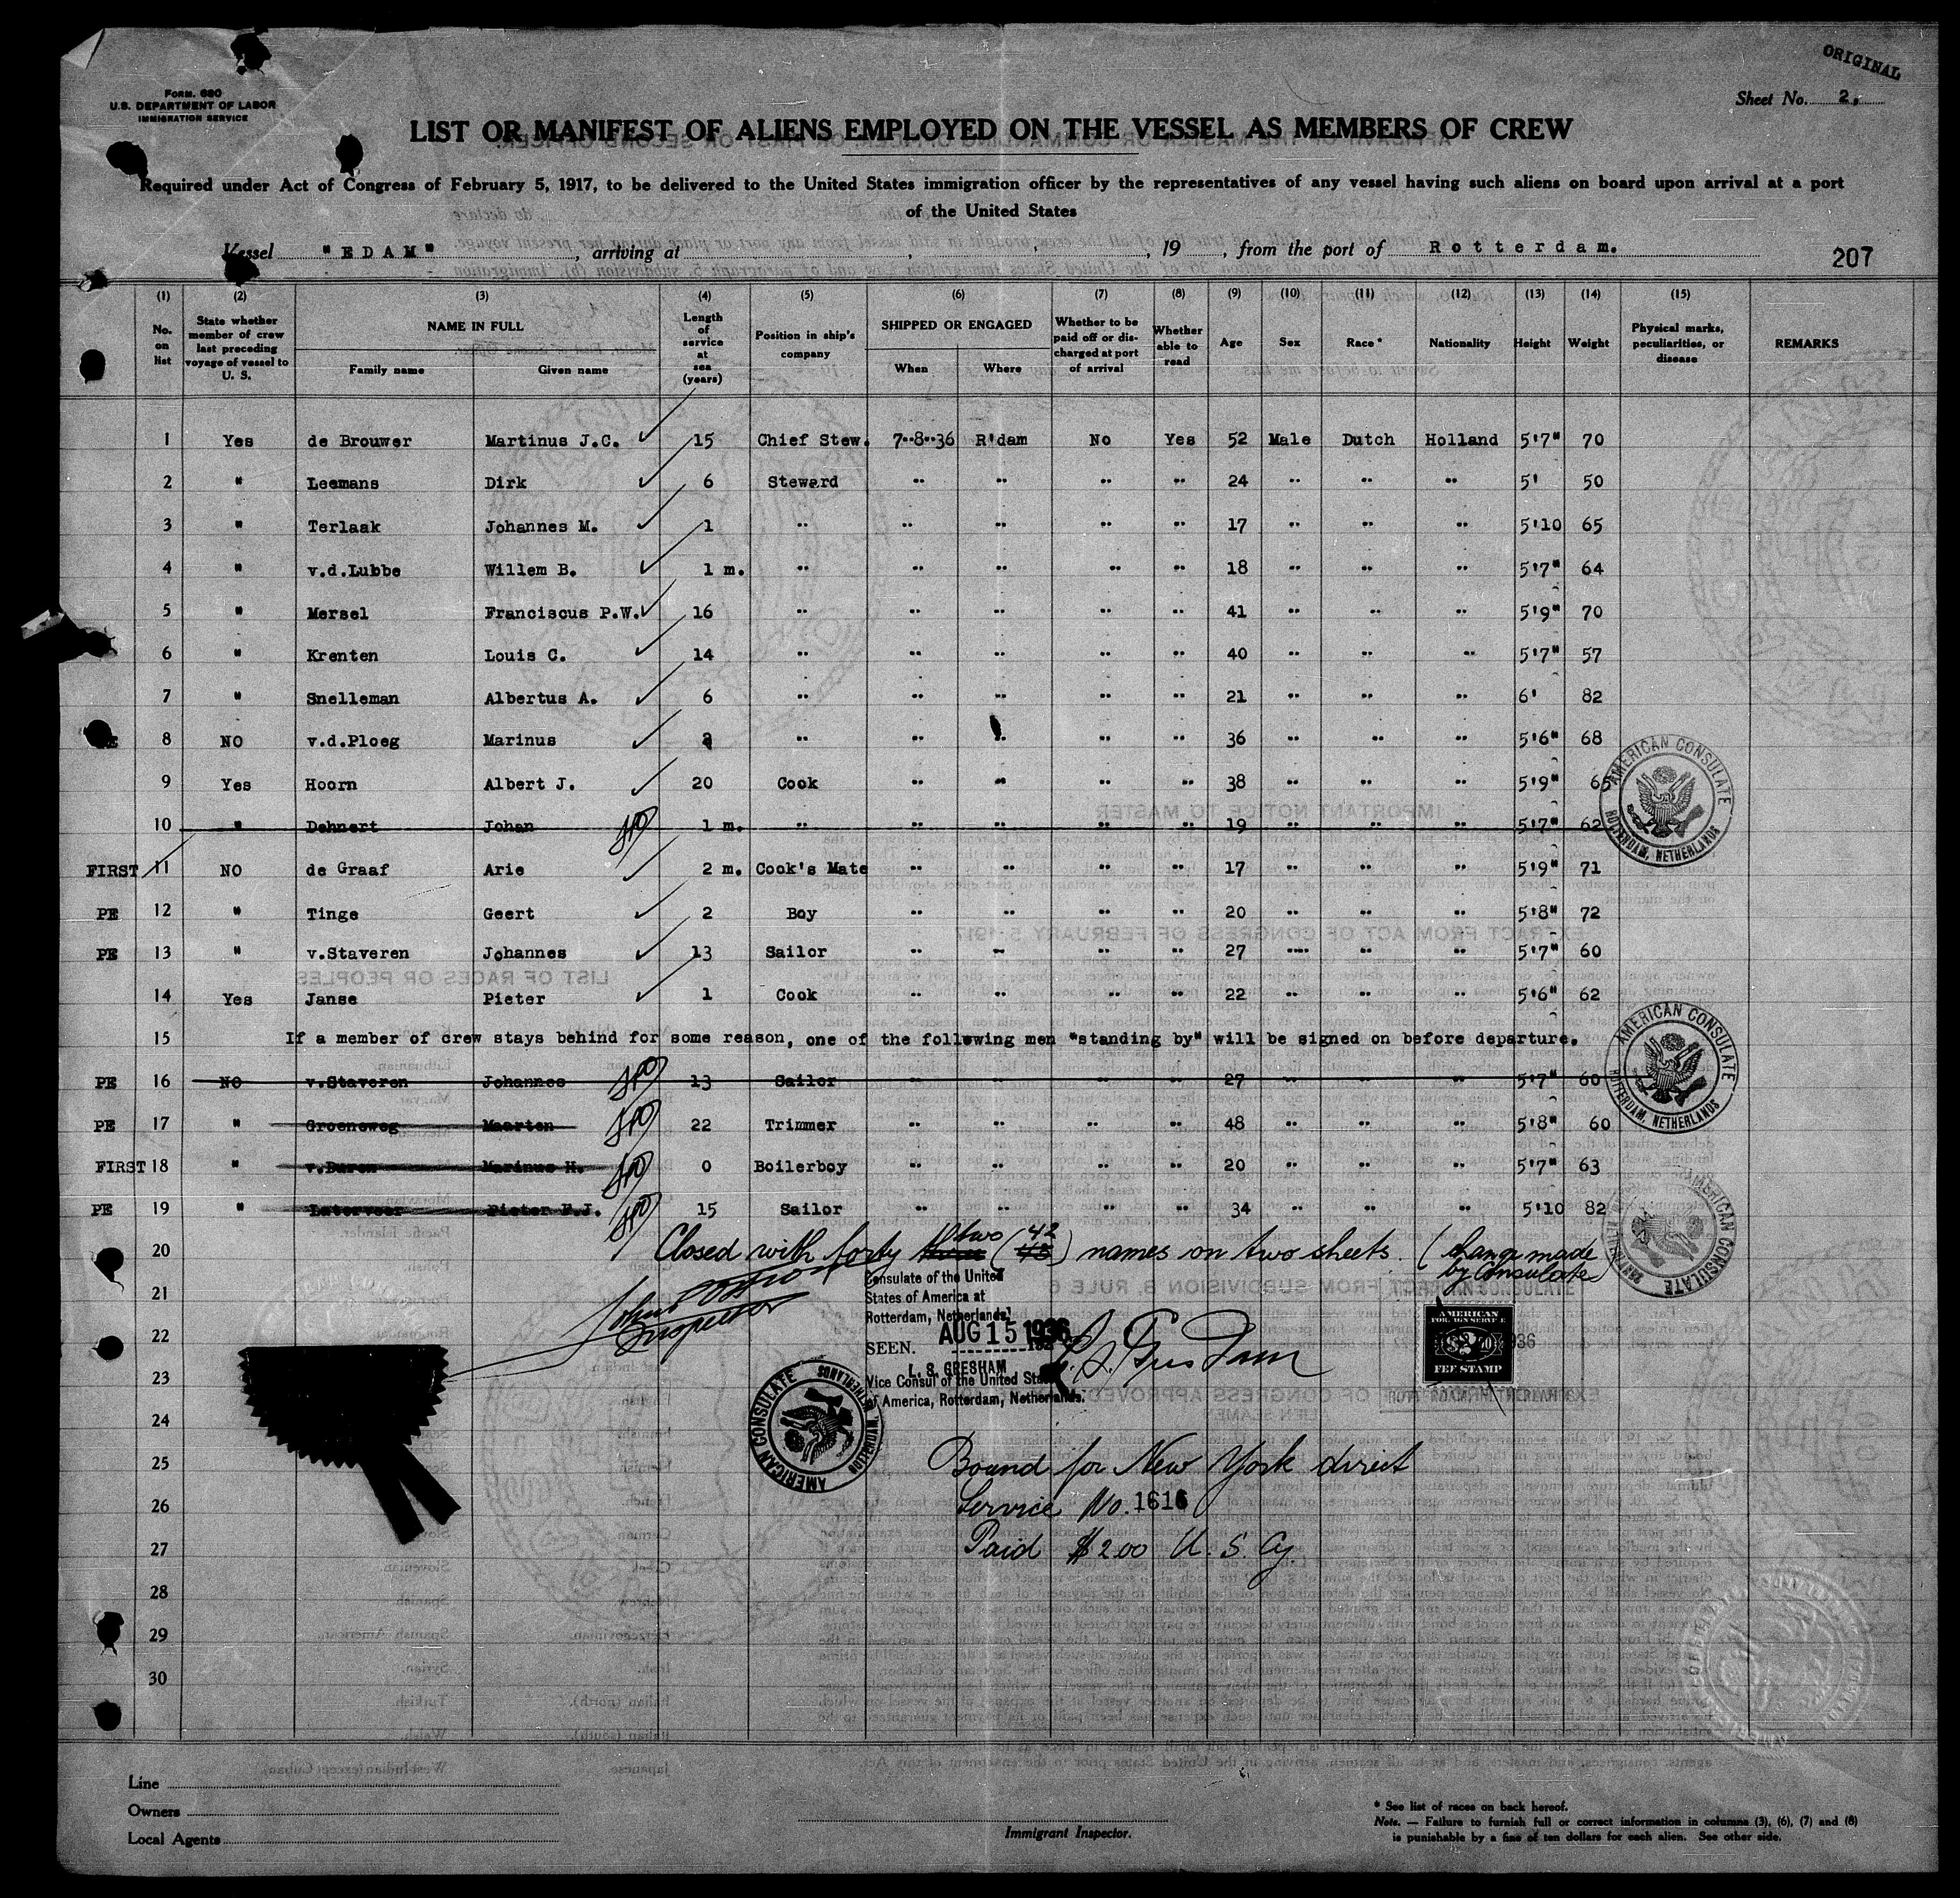 ORIGINAL
Form. 680
U.S. DEPARTMENT OF LABOR
IMMIGRATION SERVICE
Sheet No. 2.
LIST OR MANIFEST OF ALIENS EMPLOYED ON THE VESSEL AS MEMBERS OF CREW
Required under Act of Congress of February 5, 1917, to be delivered to the United States immigration officer by the representatives of any vessel having such aliens on board upon arrival at a port
of the United States
Vessel "EDAM", arriving at , , 19 , from the port of Rotterdam.
207
(1) (2) (3) (4) (5) (6) (7) (8) (9) (10) (11) (12) (13) (14) (15)
No. on list
State whether member of crew last preceding voyage of vessel to U. S.
NAME IN FULL
Family name
Given name
Length of service at sea (years)
Position in ship's company
SHIPPED OR ENGAGED
When
Where
Whether to be paid off or discharged at port of arrival
Whether able to read
Age
Sex
Race *
Nationality
Height
Weight
Physical marks, peculiarities, or disease
REMARKS
1 Yes de Brouwer Martinus J.C. 15 Chief Stew. 7-8-36 R'dam No Yes 52 Male Dutch Holland 5'7" 70
2 " Leemans Dirk 6 Steward " " " " 24 " " " 5' 50
3 " Terlaak Johannes M. 1 " " " " " 17 " " " 5'10 65
4 " v.d.Lubbe Willem B. 1 m. " " " " " 18 " " " 5'7" 64
5 " Mersel Franciscus P.W. 16 " " " " " 41 " " " 5'9" 70
6 " Krenten Louis C. 14 " " " " " 40 " " " 5'7" 57
7 " Snelleman Albertus A. 6 " " " " " 21 " " " 6' 82
8 NO v.d.Ploeg Marinus 2 " " " " " 36 " " " 5'6" 68
9 Yes Hoorn Albert J. 20 Cook " " " " 38 " " " 5'9" 65
10 " Dehnert Johan 1 m. " " " " " 19 " " " 5'7" 62
FIRST 11 NO de Graaf Arie 2 m. Cook's Mate " " " " 17 " " " 5'9" 71
PE 12 " Tinge Geert 2 Boy " " " " 20 " " " 5'8" 72
PE 13 " v.Staveren Johannes 13 Sailor " " " " 27 " " " 5'7" 60
14 Yes Janse Pieter 1 Cook " " " " 22 " " " 5'6" 62
15 If a member of crew stays behind for some reason, one of the following men "standing by" will be signed on before departure.
PE 16 NO v.Staveren Johannes 13 Sailor " " " " 27 " " " 5'7" 60
PE 17 " Groeneweg Maarten 22 Trimmer " " " " 48 " " " 5'8" 60
FIRST 18 " v.Buren Marinus H. 0 Boilerboy " " " " 20 " " " 5'7" 63
PE 19 " Laterveer Pieter F.J. 15 Sailor " " " " 34 " " " 5'10 82
20 Closed with forty two (42) names on two sheets. (change made by Consulate)
21
22
23
24
25
26
27
28
29
30
Inspector
Consulate of the United
States of America at
Rotterdam, Netherlands
SEEN. AUG 15 1936
L. S. GRESHAM
Vice Consul of the United States
of America, Rotterdam, Netherlands.
AMERICAN
FOREIGN SERVICE
$2.00
FEE STAMP
AMERICAN CONSULATE
ROTTERDAM, NETHERLANDS
AMERICAN CONSULATE
ROTTERDAM, NETHERLANDS
AMERICAN CONSULATE
AMERICAN CONSULATE
ROTTERDAM, NETHERLANDS
Bound for New York direct
Service No. 1616
Paid $2.00 U.S. Cy
Line
Owners
Local Agents
Immigrant Inspector.
* See list of races on back hereof.
Note. — Failure to furnish full or correct information in columns (3), (6), (7) and (8)
is punishable by a fine of ten dollars for each alien. See other side.